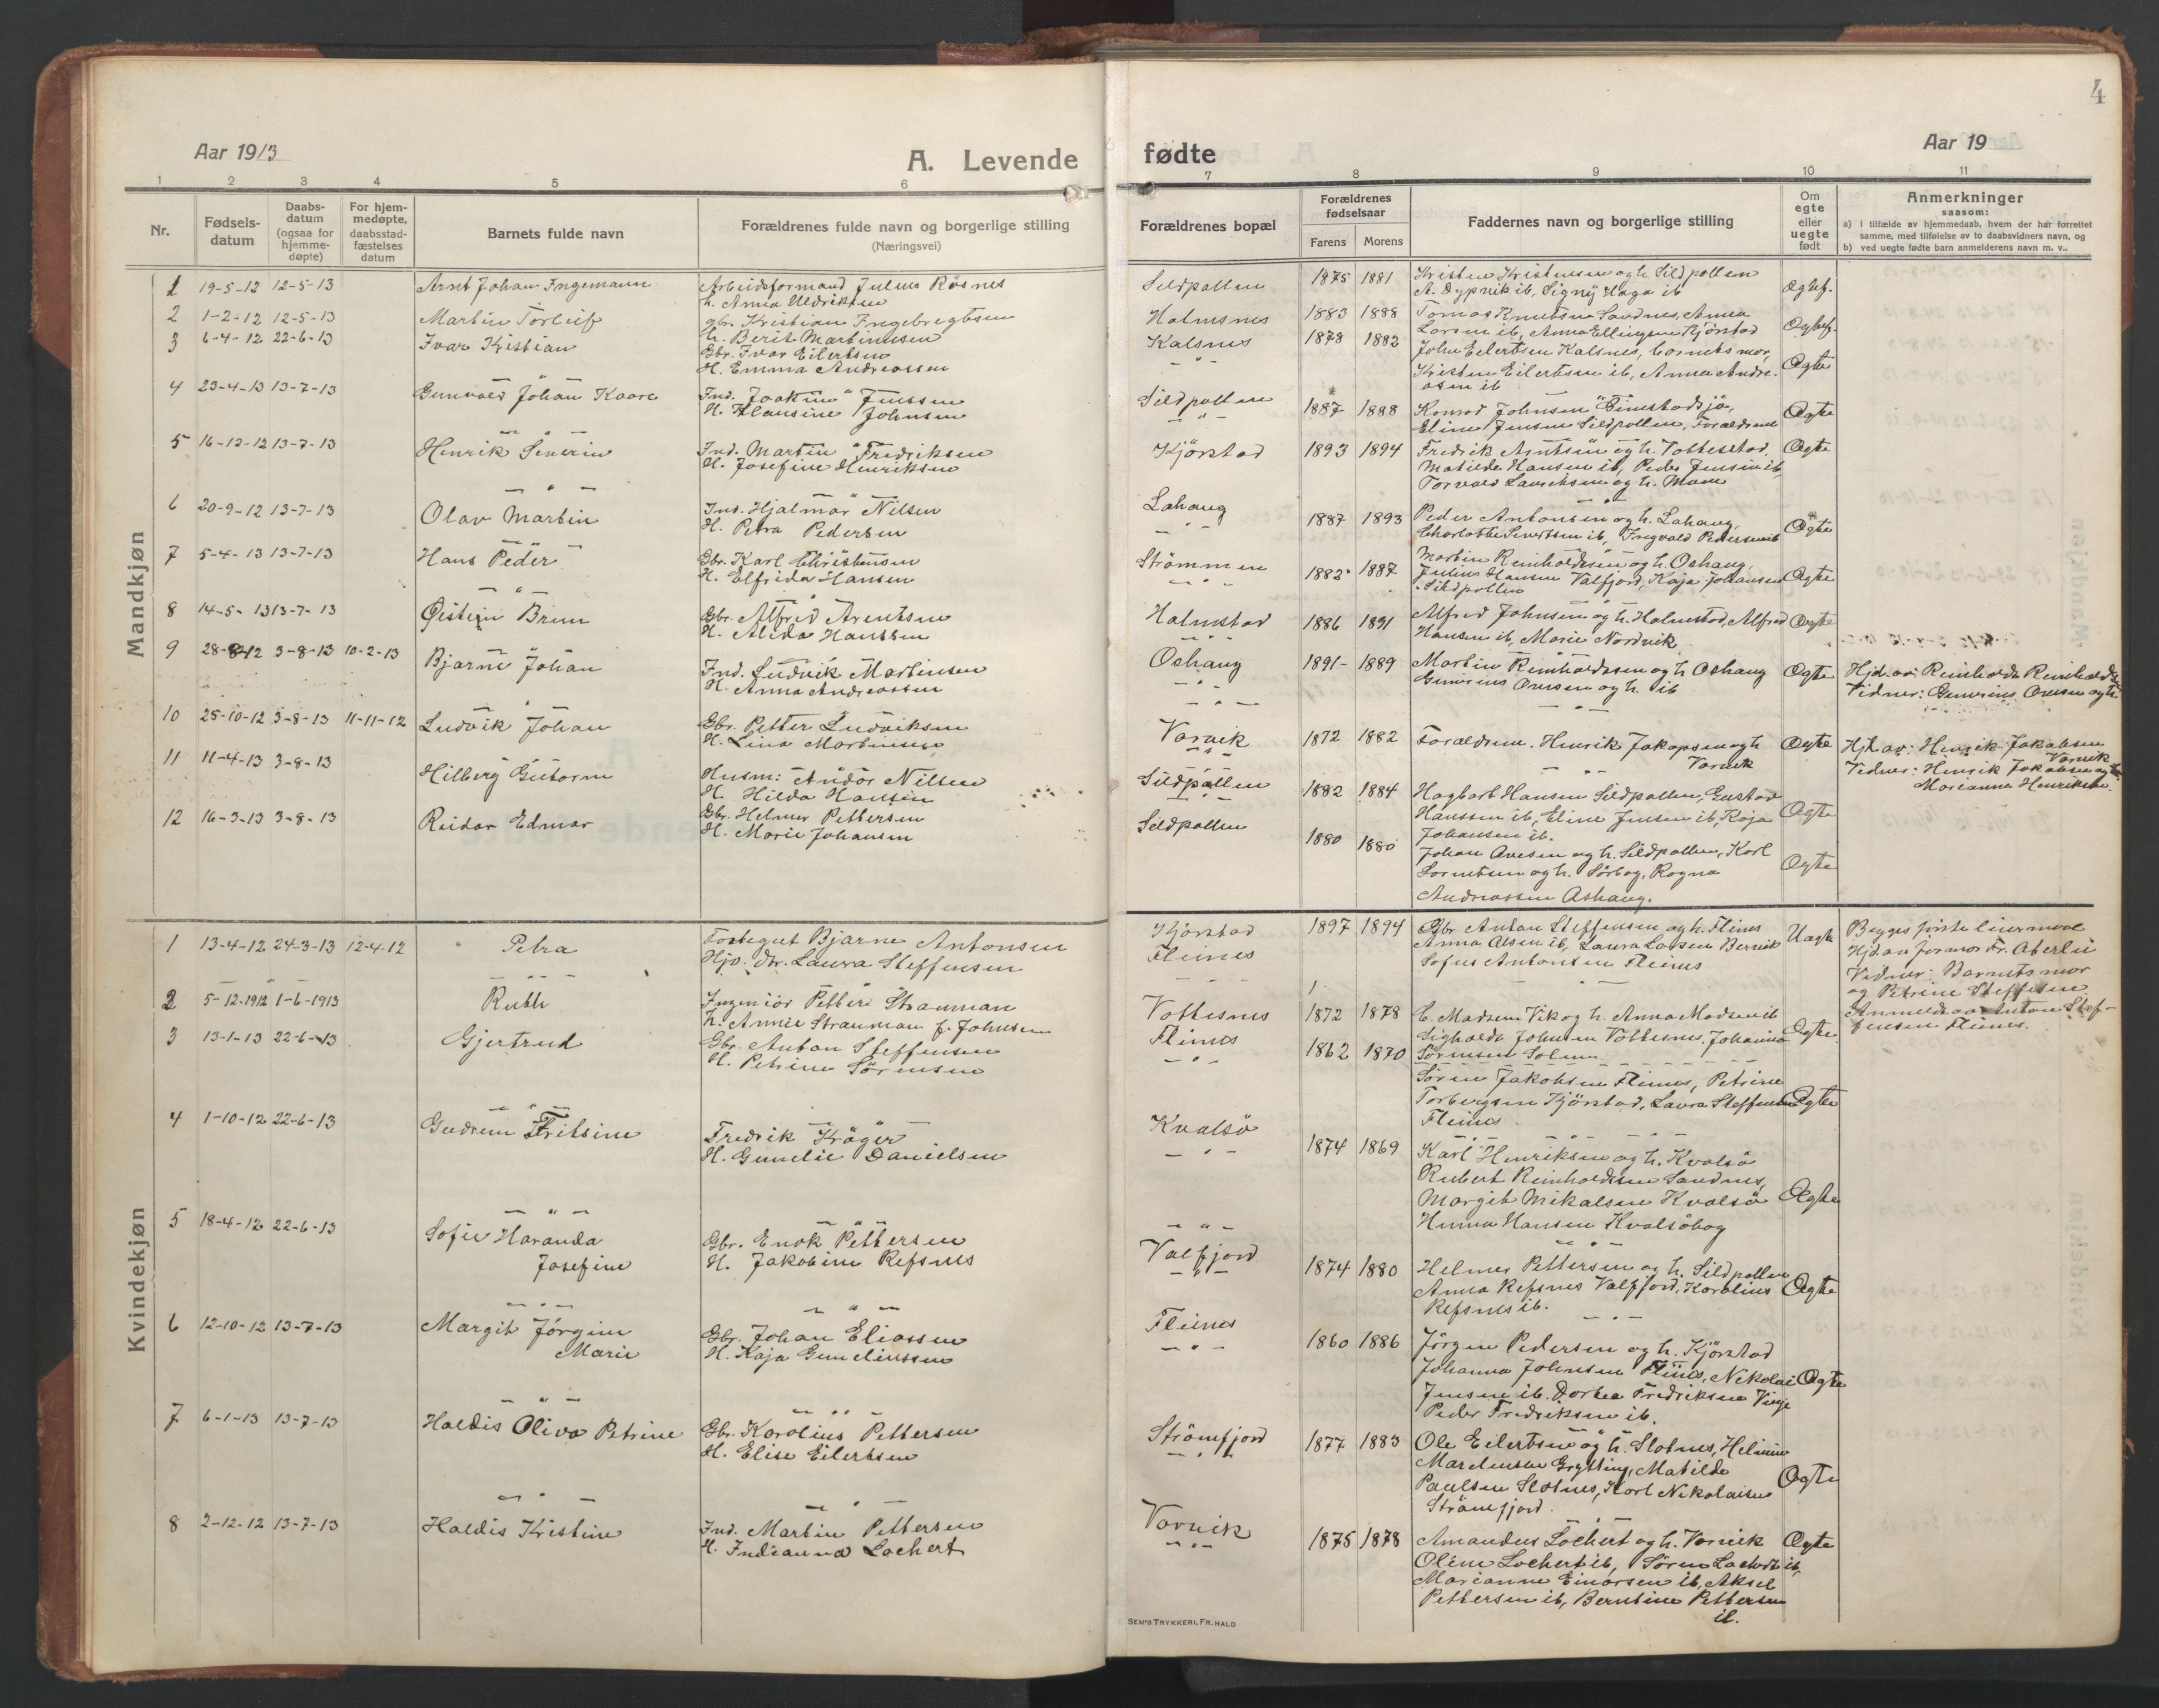 4
Aar 1913
A. Levende
fødte
Aar 19
1 2 3 4 5 6 7 8 9 10 11
Nr.
Fødsels-
datum
Daabs-
datum
(ogsaa for
hjemme-
døpte)
For hjem-
medøpte,
daabsstad-
fæstelses
datum
Barnets fulde navn
Forældrenes fulde navn og borgerlige stilling
(Næringsvei)
Forældrenes bopæl
Forældrenes
fødselsaar
Farens Morens
Faddernes navn og borgerlige stilling
Om
egte
eller
uegte
født
Anmerkninger
saasom:
a) i tilfælde av hjemmedaab, hvem der har forrettet
samme, med tilføielse av to daabsvidners navn, og
b) ved uegte fødte barn anmelderens navn m. v..
Mandkjøn
1 19-5-12 12-5-13 Arnt Johan Ingemann
Arbeidsformand Julius Røsnes
h. Anna Uldriksen
Sildpollen 1875 1881
Kristen Kristensen og h. Sildpollen
A. Dypvik ib, Signy Haga ib
2 1-2-12 12-5-13 Martin Torleif
gbr. Kristian Ingebregtsen
h. Berit Martinusen
Holmsnes 1883 1888
Tomas Knutsen Sandnes, Anna
Larsen ib, Anna Ellingsen Kjørstad
3 6-4-12 22-6-13 Ivar Kristian
Gbr. Ivar Eilertsen
H. Emma Andreassen
Kalsnes 1878 1882
John Eilertsen Kalsnes, barnets mor,
Kristen Eilertsen ib, Anna Andre-
asen ib
Ogte
4 23-4-13 13-7-13 Gunvald Johan Kaare
Ind. Joakim Jenssen
H. Klausine Johnsen
Sildpollen 1887 1888
Konrad Johnsen Finstadsjø,
Eline Jensen Sildpollen, Forældrene
Ogte
5 16-12-12 13-7-13 Henrik Severin
Ind. Martin Fredriksen
H. Josefine Henriksen
Kjørstad 1893 1894
Fredrik Arntsen og h. Vottestad,
Matilde Hansen ib, Peder Jensen ib
Torvald Lauritsen og h. Moen
Ogte
6 20-9-12 13-7-13 Olav Martin
Ind. Hjalmar Nilsen
H. Petra Pedersen
Lahaug 1887 1893
Peder Antonsen og h. Lahaug,
Charlotte Sivertsen ib, Ingvald Pedersen ib
Ogte
7 5-4-13 13-7-13 Hans Peder
Gbr. Karl Christensen
H. Elfrida Hansen
Strømmen 1882 1887
Martin Reinholdsen og h. Oshaug,
Julius Hansen Valfjord, Kaja Johansen
Sildpollen
Ogte
8 14-5-13 13-7-13 Øistein Brun
Gbr. Alfred Arentsen
H. Alida Hanssen
Holmstad 1886 1891
Alfred Johnsen og h. Holmstad, Alfred
Hansen ib, Marie Nordvik
Ogte
9 28-8-12 3-8-13 10-2-13 Bjarne Johan
Ind. Ludvik Martinsen
H. Anna Andreassen
Oshaug 1891- 1889
Martin Reinholdsen og h Oshaug
Gunerius Ovesen og h. ib
Ogte
Hjd. av: Reinholda Reinholdsen
Vidner: Gunerius Ovesen og h.
10 25-10-12 3-8-13 11-11-12 Ludvik Johan
Gbr. Petter Ludviksen
H. Lina Martinsen
Vorvik 1872 1882
Forældrene. Henrik Jakopsen og h
Vorvik
Ogte
Hjd. av: Henrik Jakobsen
Vorvik
Vidner: Henrik Jakobsen og h.
Marianna Henriksen.
11 11-4-13 3-8-13 Hilberg Gutorm
Husm: Andor Nilsen
H. Hilda Hansen
Sildpollen 1882 1884
Hagbart Hansen Sildpollen, Gustav
Hanssen ib, Eline Jensen ib, Kaja
Johansen ib.
Ogte
12 16-3-13 3-8-13 Reidar Edmar
Gbr. Helmer Pettersen
H. Marie Johansen
Sildpollen 1880 1880
Johan Ovesen og h. Sildpollen, Karl
Sørbog, Ragna
Andreassen Oshaug.
Ogte
Kvindekjøn
1 13-4-12 24-3-13 12-4-12 Petra
Bjarne Antonsen
Laura Steffensen
Kjørstad
Fleines
1897 1894
Gbr. Anton Steffensen og h. Fleines
Anna Olsen ib, Laura Larsen Bervik
Sofus Antonsen Fleines
Uegte
Begges første leiermaal
Hjd av jormor Fr. Aberlii
Vidner: Barnets mor
og Petrine Steffesen
Anmeldt av Anton Stef-
fensen Fleines.
2 5-12-1912 1-6-1913 Ruth
Ingeniør Petter Strauman
h. Annie Strauman f. Johnsen
Vottesnes 1872 1878
C. Madsen Vik og h. Anna Madsen ib
Sigholda Johnsen Vottesnes, Johanna
Sørensen
Ogte
3 13-1-13 22-6-13 Gjertrud
Gbr. Anton Steffensen
H. Petrine Sørensen
Fleines 1862 1870
Søren Jakobsen Fleines, Petrine
Torbergsen Kjørstad, Laura Steffensen
Fleines
Ogte
4 1-10-12 22-6-13 Gudrun Fritsine
Fredrik Krøger
H. Gunelie Danielsen
Kvalsø 1874 1869
Karl Henriksen og h. Kvalsø
Rubert Reinholdsen Sandnes,
Margit Mikalsen Kvalsø
Hansen Kvalsøbog
Ogte
5 18-4-12 22-6-13 Sofie Haranda
Josefine
Gbr. Enok Pettersen
H. Jakobine Refsnes
Valfjord 1874 1880
Helmer Pettersen og h. Sildpollen
Anna Refsnes Valfjord, Karolius
Refsnes ib.
Ogte
6 12-10-12 13-7-13 Margit Jørgine
Marie
Gbr. Johan Eliassen
H. Kaja Guneliussen
Fleines 1860 1886
Jørgen Pedersen og h. Kjørstad
Johanna Johnsen Fleines, Nikolai
Jensen ib. Dortea Fredriksen Vinje
Peder Fredriksen ib.
Ogte
7 6-1-13 13-7-13 Haldis Oliva Petrine
Gbr. Karolius Pettersen
H. Elise Eilertsen
Strømfjord 1877 1883
Ole Eilertsen og h. Slotnes, Helmine
Grytting, Matilde
Paulsen Slotnes, Karl Nikolaisen
Strømfjord.
Ogte
8 2-12-12 13-7-13 Haldis Kristine
Ind. Martin Pettersen
H. Indianna Lochert
Vorvik 1875 1878
Amandus Lochert og h. Vorvik
Oline Lochert ib, Søren Lochert ib,
Marianne Einarsen ib, Aksel
Pettersen ib, Berntine Pettersen
ib.
Ogte
SEM'S TRYKKERI, FR. HALD